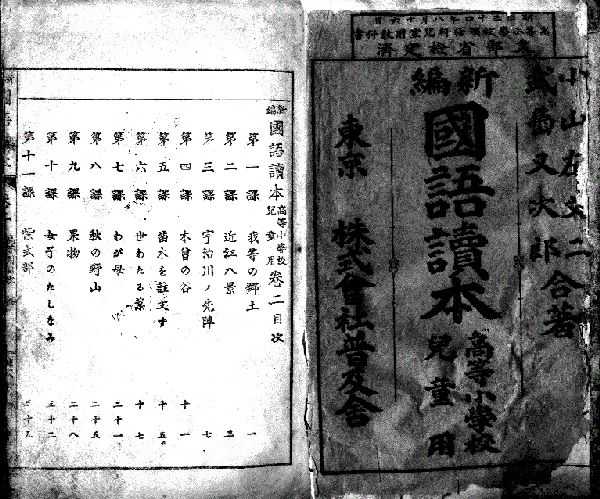 明治三十四年八月十六日
高等小學校國語科兒童用教科書
文部省檢定濟
小山左文二
武島又次郎 合著
新編
國語讀本 高等小學校
兒童用
東京 株式會社普及舍
新編 國語讀本 高等小學校兒童用 卷二目次
第一課 我等の鄕土 一
第二課 近江八景 三
第三課 宇治川ノ先陣 七
第四課 木曾の谷 十一
第五課 苗木を註文す 十五
第六課 世わたる業 十七
第七課 わが母 二十一
第八課 秋の野山 二十五
第九課 果物 二十八
第十課 女子のたしなみ 三十二
第十一課 紫式部